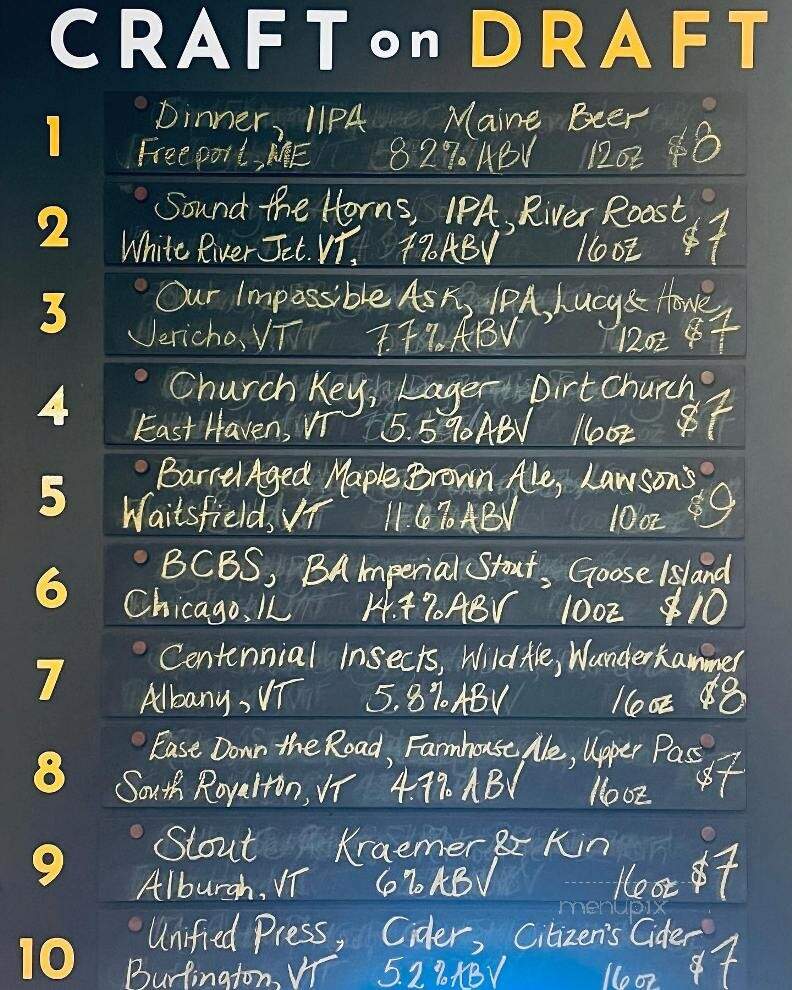 CRAFT on DRAFT
1 Dinner, IIPA Maine Beer
Freeport, ME 8.2% ABV 12oz $8
2 Sound the Horns, IPA, River Roost
White River Jct. VT, 7% ABV 16oz $7
3 Our Impossible Ask, IPA, Lucy & Howe
Jericho, VT 7.7% ABV 12oz $7
4 Church Key, Lager Dirt Church
East Haven, VT 5.5% ABV 16oz $7
5 Barrel Aged Maple Brown Ale, Lawson's
Waitsfield, VT 11.6% ABV 10oz $9
6 BCBS, BA Imperial Stout, Goose Island
Chicago, IL 14.7% ABV 10oz $10
7 Centennial Insects, Wild Ale, Wunderkammer
Albany, VT 5.8% ABV 16oz $8
8 Ease Down the Road, Farmhouse Ale, Upper Pass
South Royalton, VT 4.7% ABV 16oz $7
9 Stout Kraemer & Kin
Alburgh, VT 6% ABV 16oz $7
menupix
10 Unified Press, Cider, Citizen's Cider
Burlington, VT 5.2% ABV 16oz $7